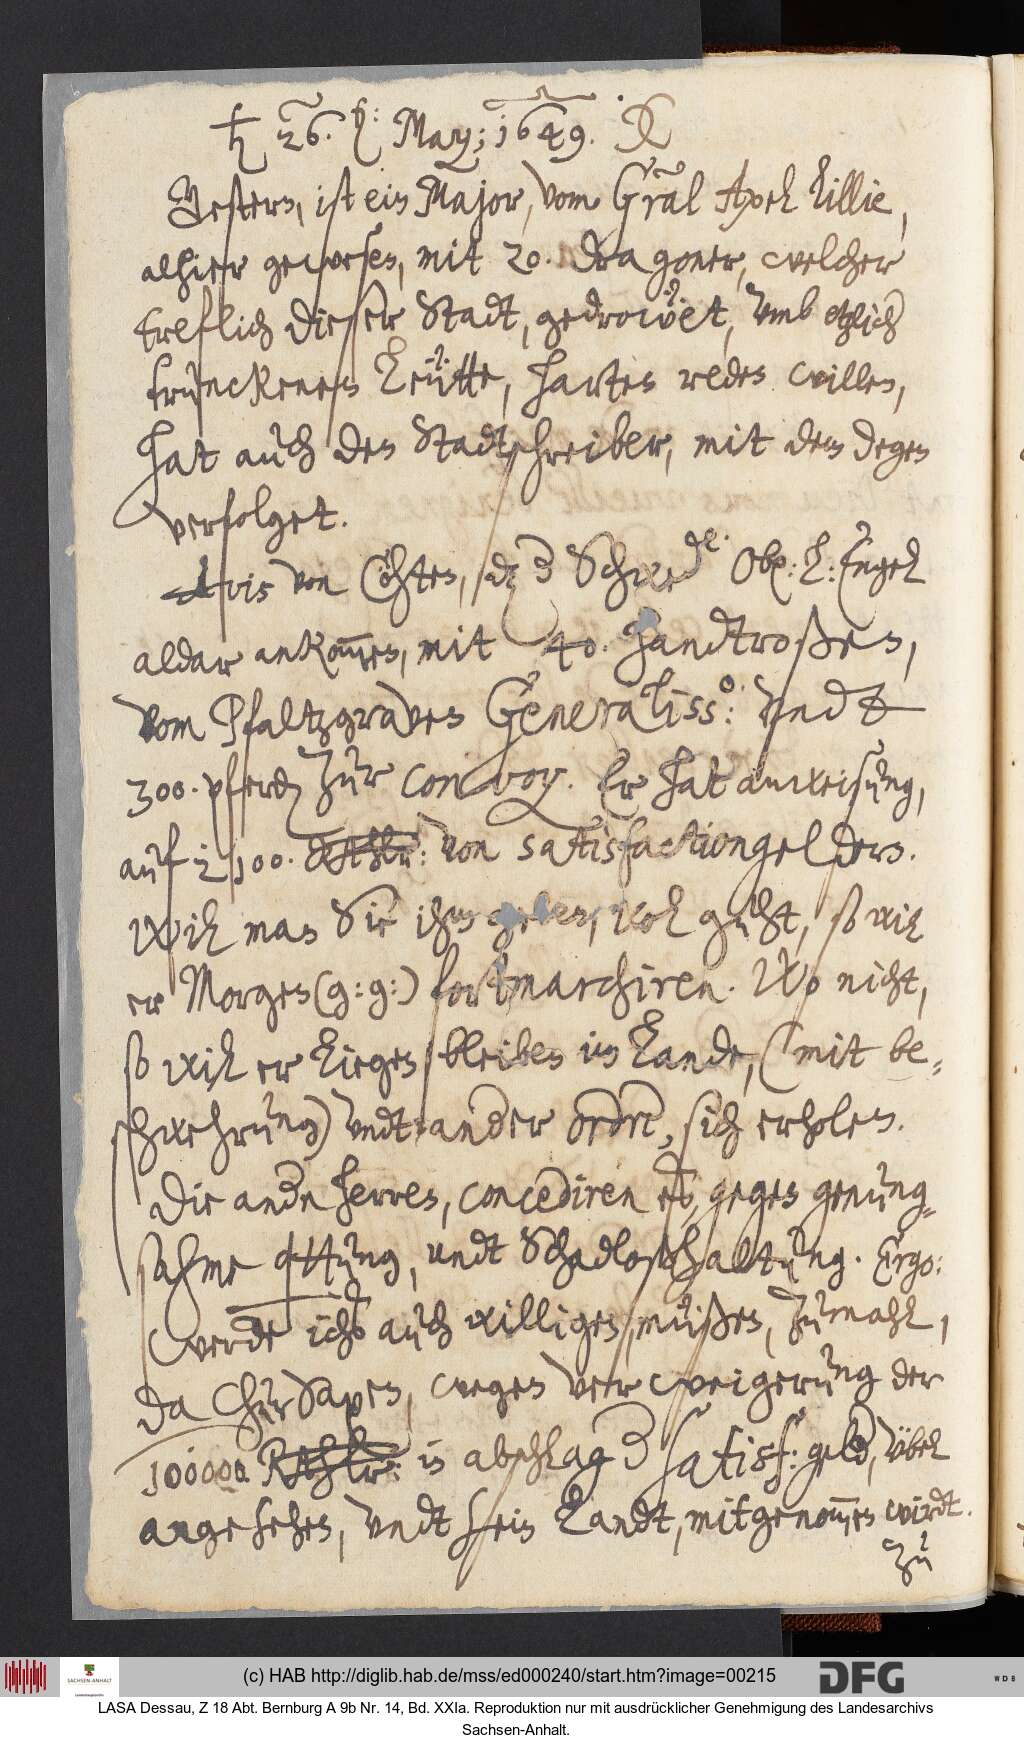 ♄ 26. ħ: May; 1649.
Gestern, ist ein Major, vom Gral Axel Lillie,
alhier gewesen, mit 20. dragoner, welcher
trefflich dieser Stadt, gedrowet, umb etzlicher
trunckenen Leütte, harten reden willen,
hat auch den Stadtschreiber, mit dem degen
verfolget.
Avis von Cöhten, dz d Schwede Ob.: L: Engel
aldar ankommen, mit 40. handtroßen,
vom Pfaltzgraven Generaliss:o undt
300. pferdn zur convoy. Er hat anweisung,
auf 2100. Rthlr: von satisfactiongeldern.
Will man Sie ihm geben, wol guht, so will
er Morgen (g: g:) fortmarchiren. Wo nicht,
so will er liegen bleiben im Lande, (mit be-
schwehrung) undt ander ordre, sich erholen.
Die andn herren, concediren es, gegen genung-
sahme qttung, undt Schadloßhaltung. Ergo:
werde ichs auch willigen müßen, zumahl,
da ChurSaxen, wegen verweigerung der
100000 Rthlr: in abschlag d satisf: geld, übel
angesehen, undt sein Landt, mitgenommen wirdt.
Zu
(c) HAB http://diglib.hab.de/mss/ed000240/start.htm?image=00215
DFG
WDB
SACHSEN-ANHALT
LASA Dessau, Z 18 Abt. Bernburg A 9b Nr. 14, Bd. XXIa. Reproduktion nur mit ausdrücklicher Genehmigung des Landesarchivs
Sachsen-Anhalt.